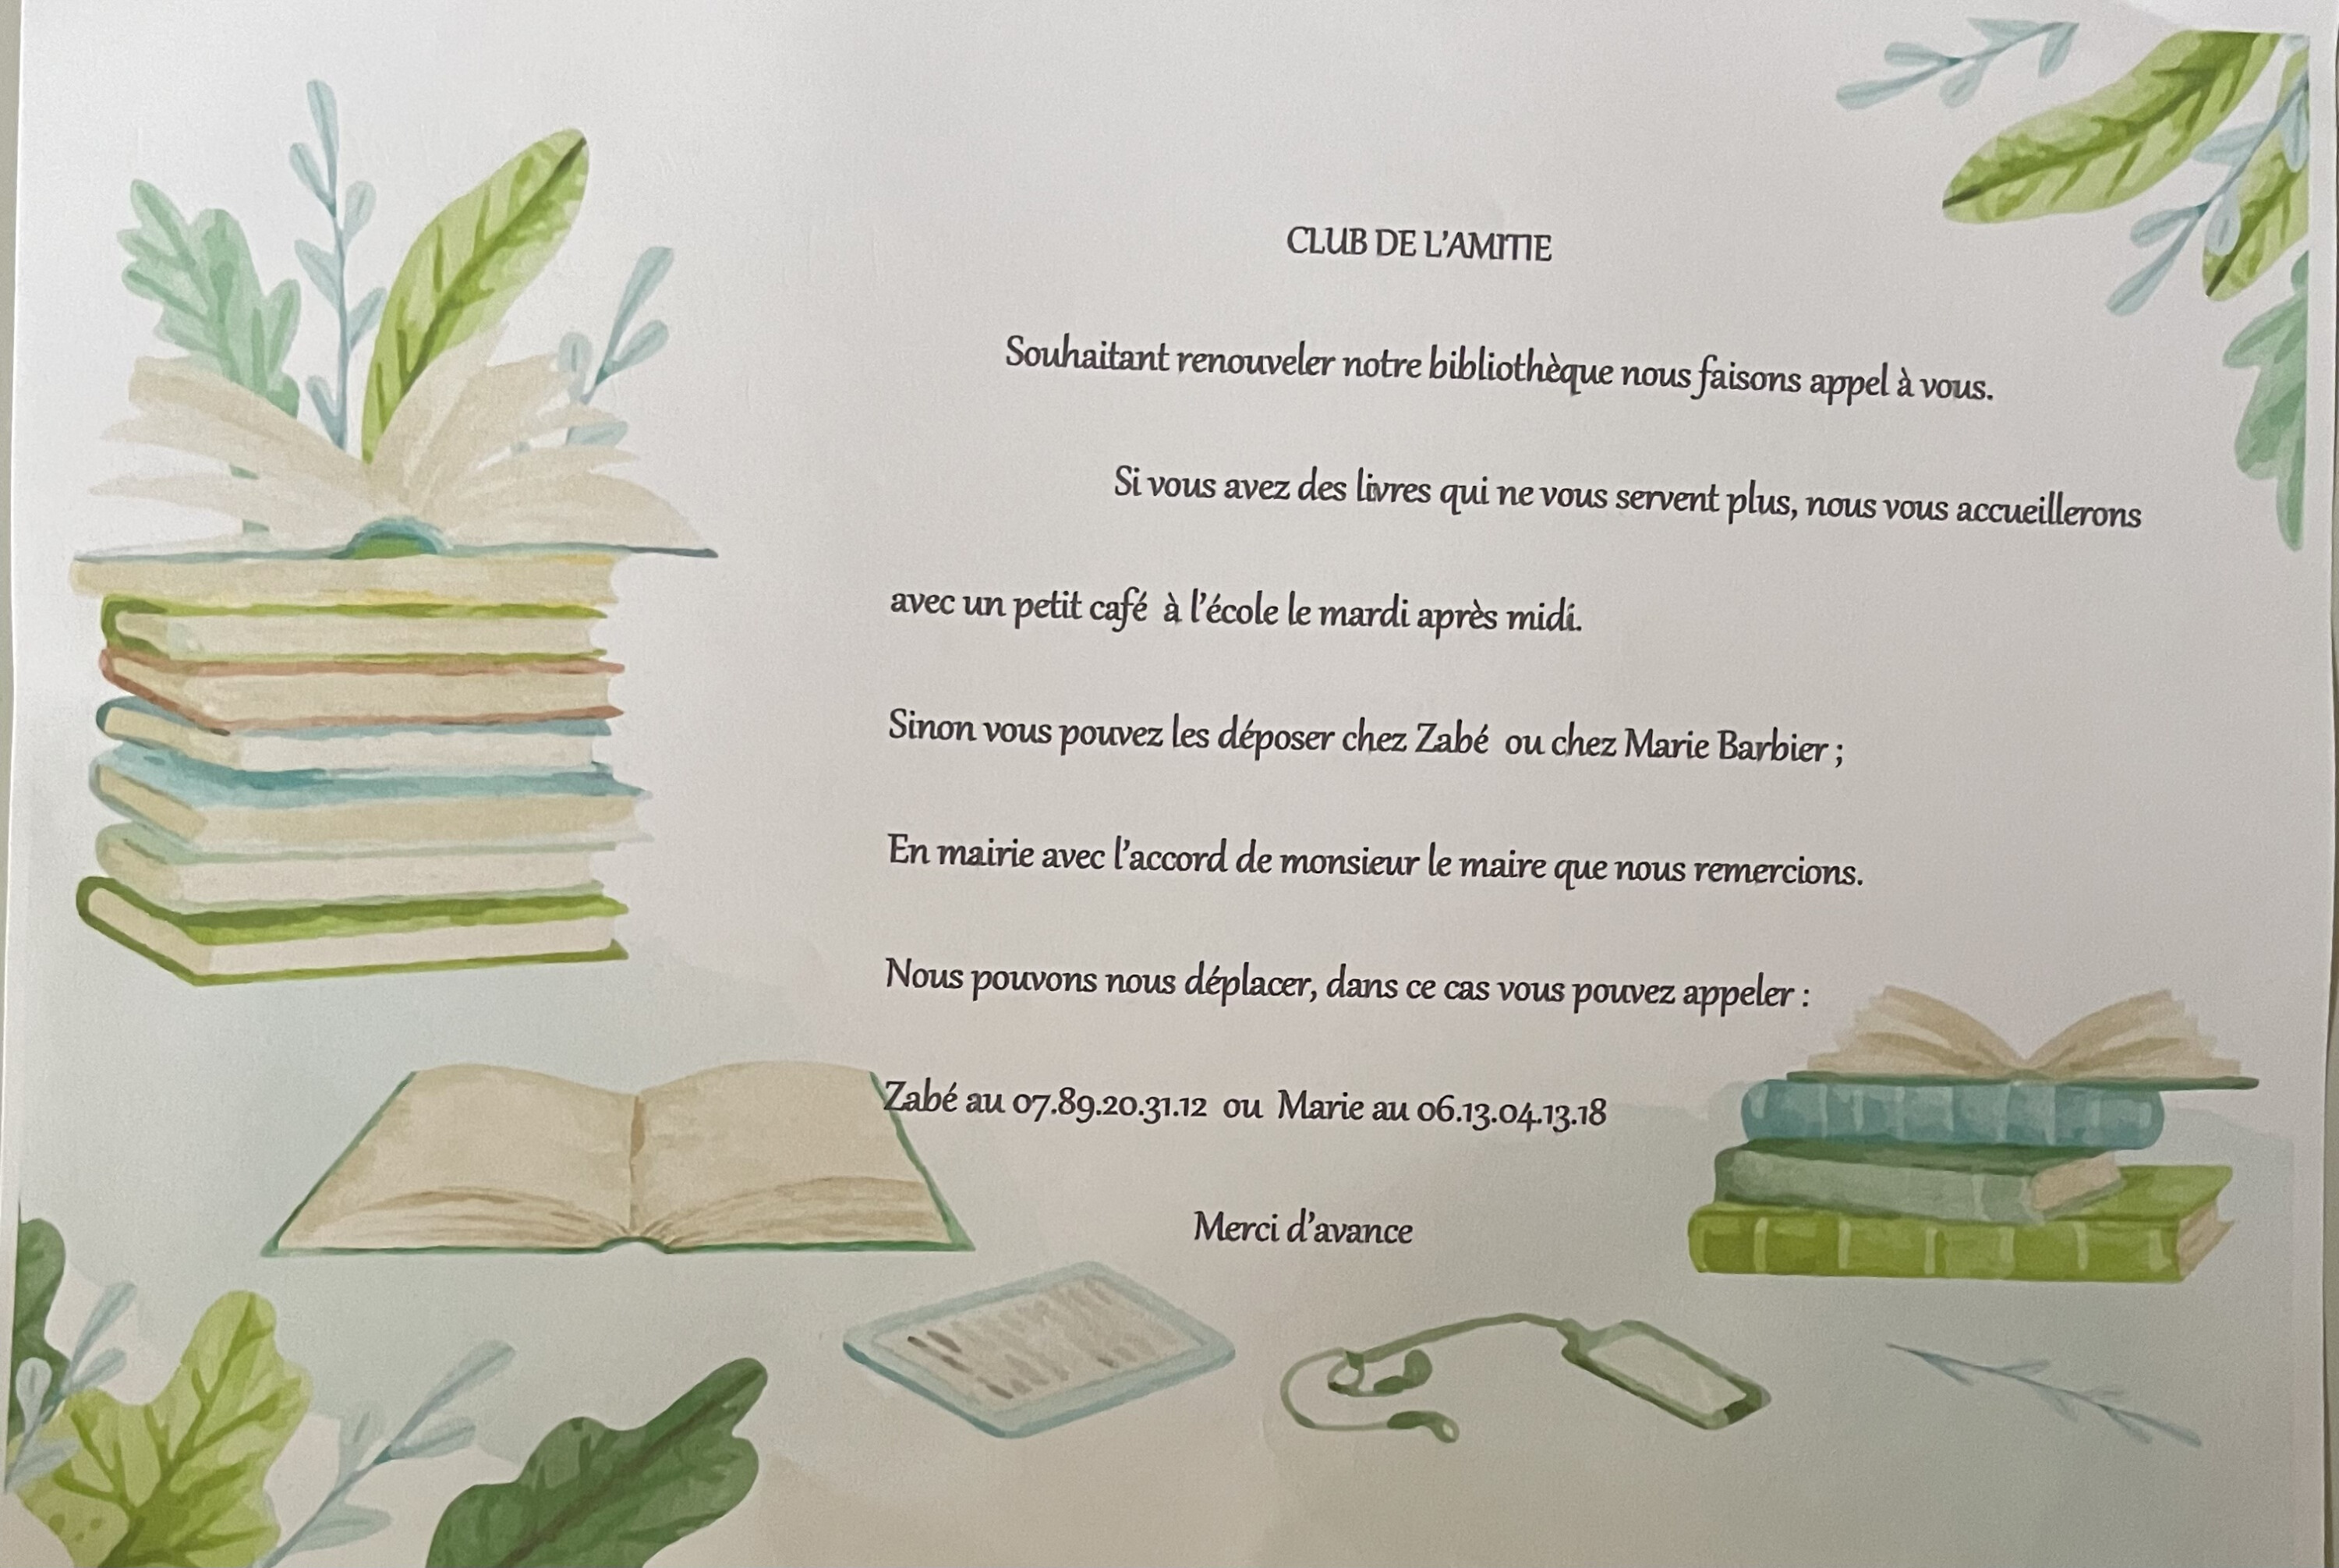 CLUB DE L'AMITIE
Souhaitant renouveler notre bibliothèque nous faisons appel à vous.
Si vous avez des livres qui ne vous servent plus, nous vous accueillerons
avec un petit café à l'école le mardi après midi.
Sinon vous pouvez les déposer chez Zabé ou chez Marie Barbier ;
En mairie avec l'accord de monsieur le maire que nous remercions.
Nous pouvons nous déplacer, dans ce cas vous pouvez appeler :
Zabé au 07.89.20.31.12 ou Marie au 06.13.04.13.18
Merci d'avance